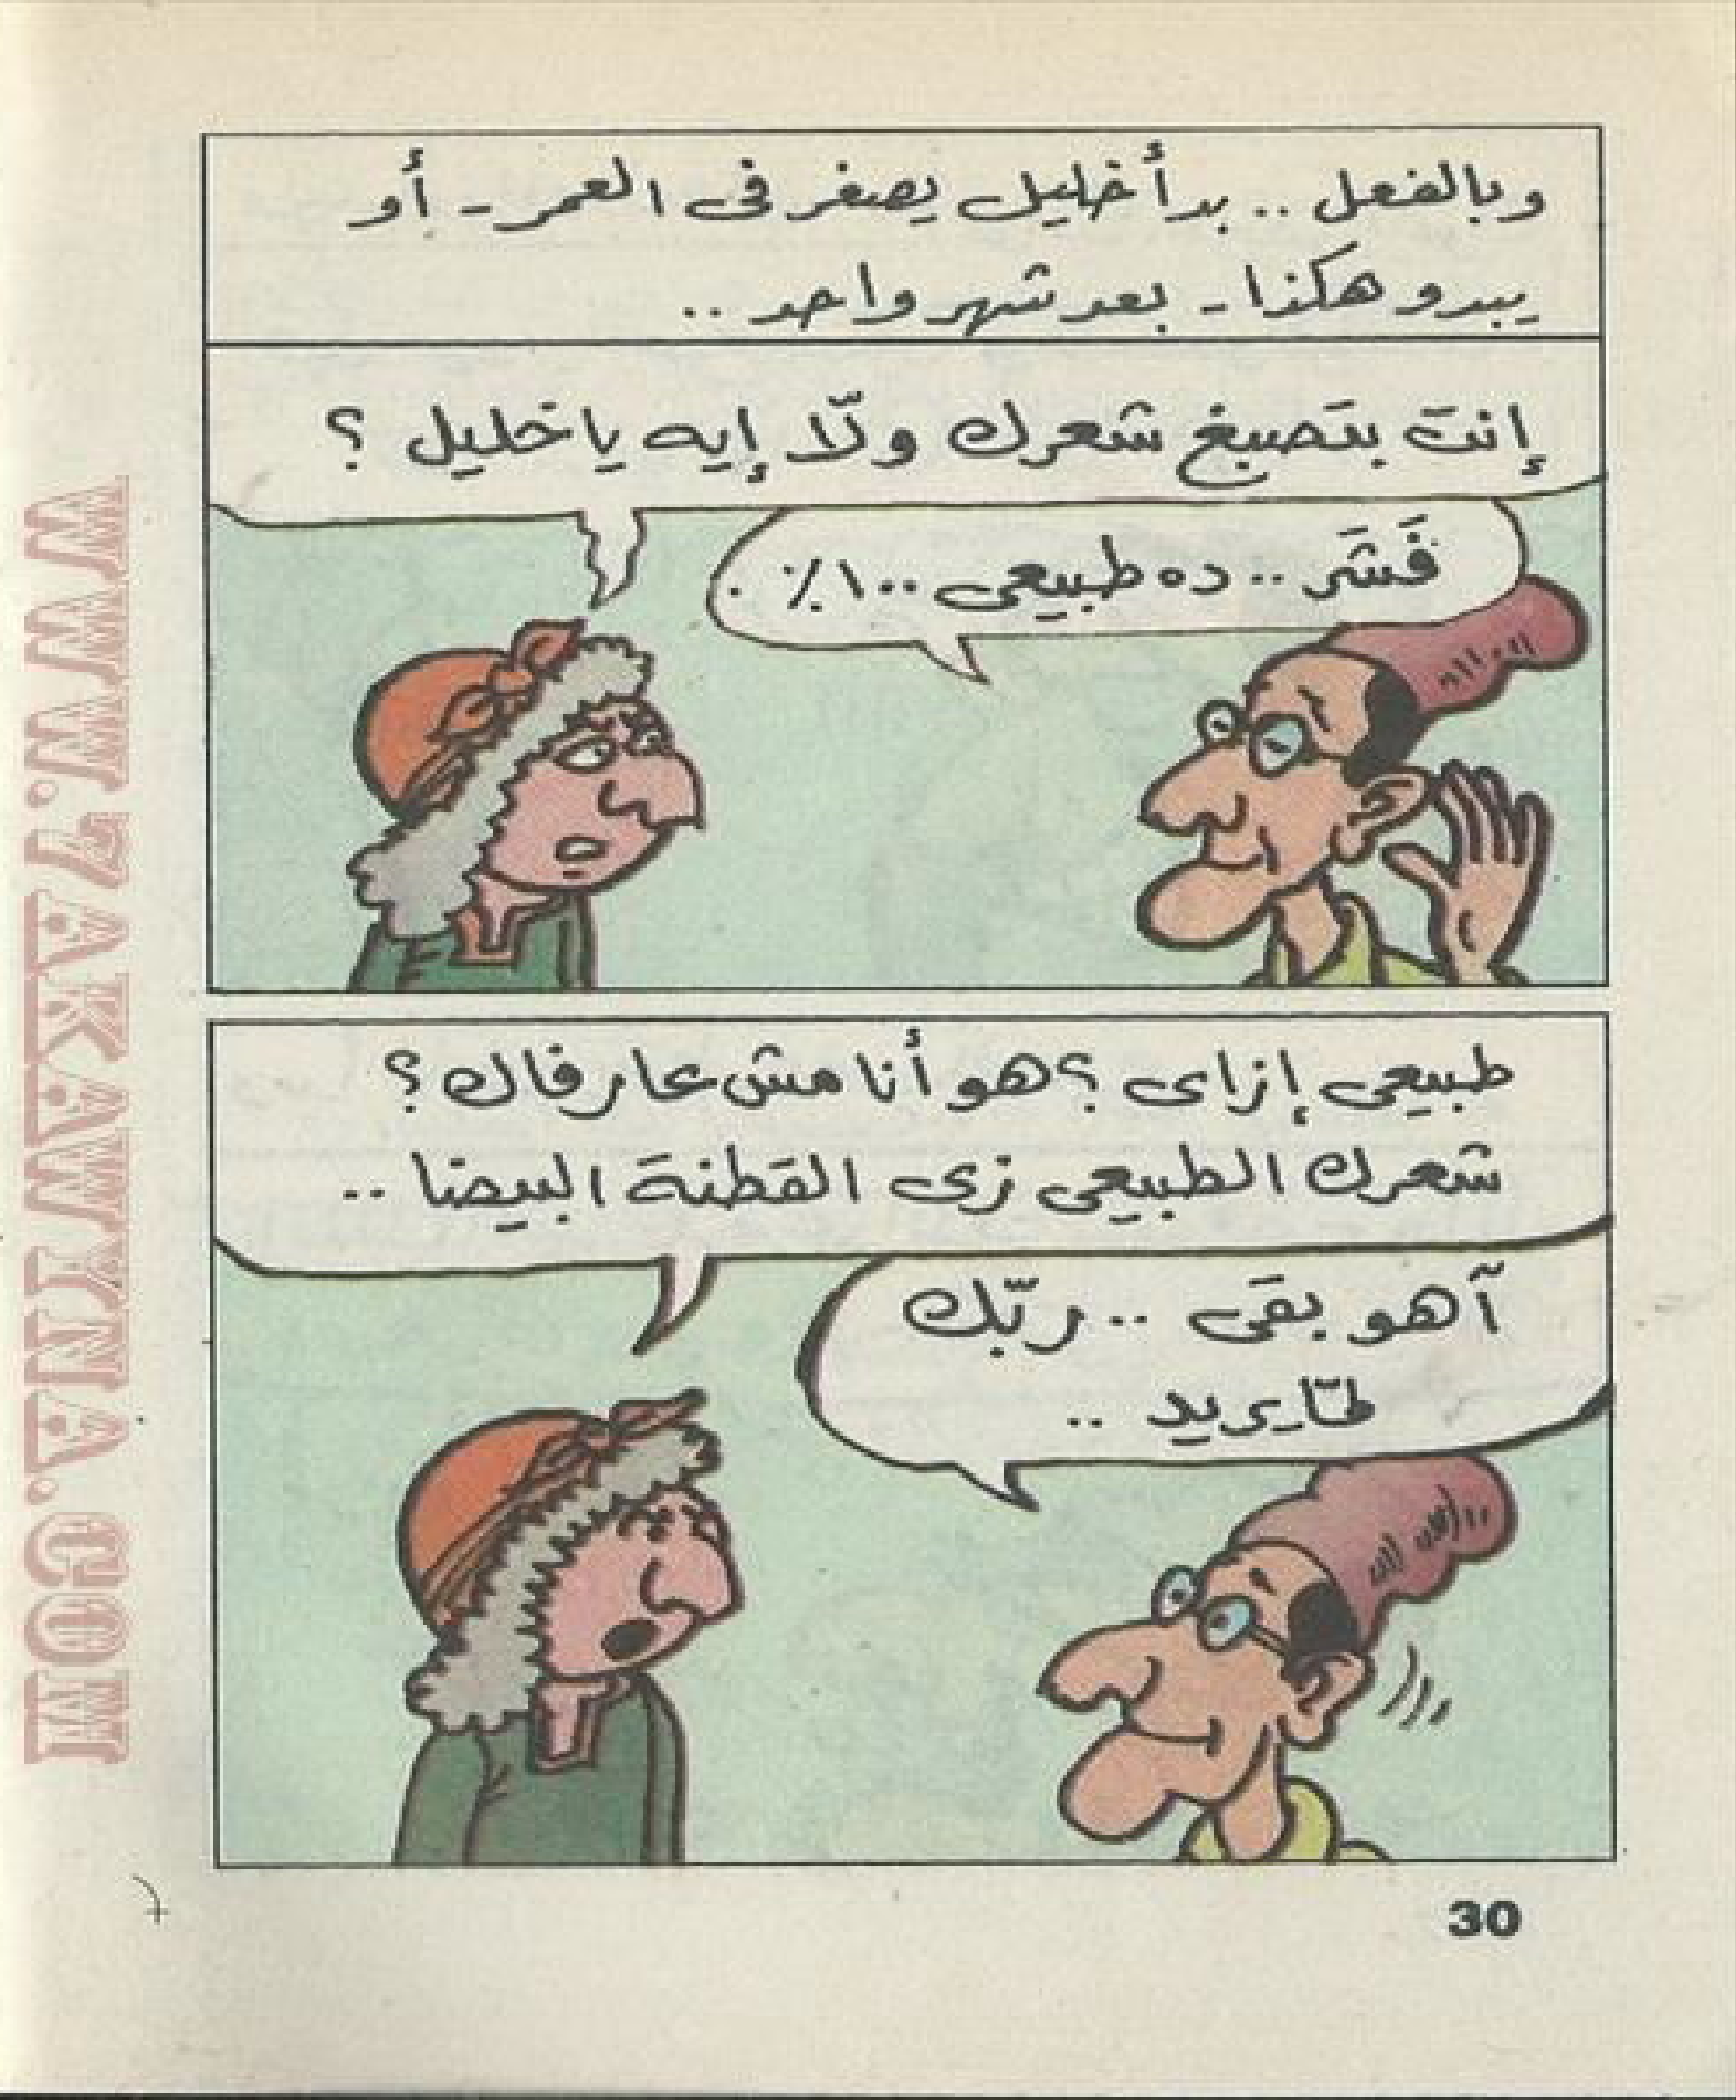 وبالفعل .. بدأ خليل يصغر فى العمر - أو
يبدو هكذا - بعد شهر واحد ..
إنت بتصبغ شعرك ولّا إيه يا خليل ؟
فَشَر .. ده طبيعى ١٠٠٪ .
طبيعى إزاى ؟ هو أنا مش عارفاك ؟
شعرك الطبيعى زى القطنة البيضا ..
آهو بقى .. ربّك
لمّا يريد ..
30
WWW.7AKAWINA.COM